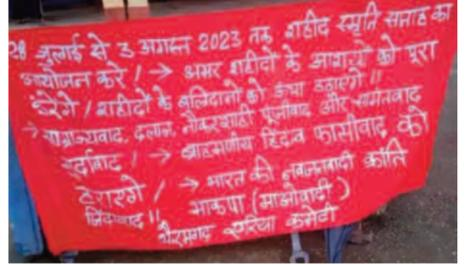 28 जुलाई से 3 अगस्त 2023 तक शहीद स्मृति सप्ताह का
आयोजन करें / → अमर शहीदों के आशाओं को पूरा
करेंगे / शहीदों के बलिदानों को ऊंचा उठाएंगे ॥
→ साम्राज्यवाद, दलाल, नौकरशाही पूंजीवाद और सामंतवाद
मुर्दाबाद / → ब्राह्मणीय हिंदुत्व फासीवाद को
हराएंगे / → भारत की नवजनवादी क्रांति
जिंदाबाद ॥ भाकपा (माओवादी)
भैरमगढ़ एरिया कमेटी